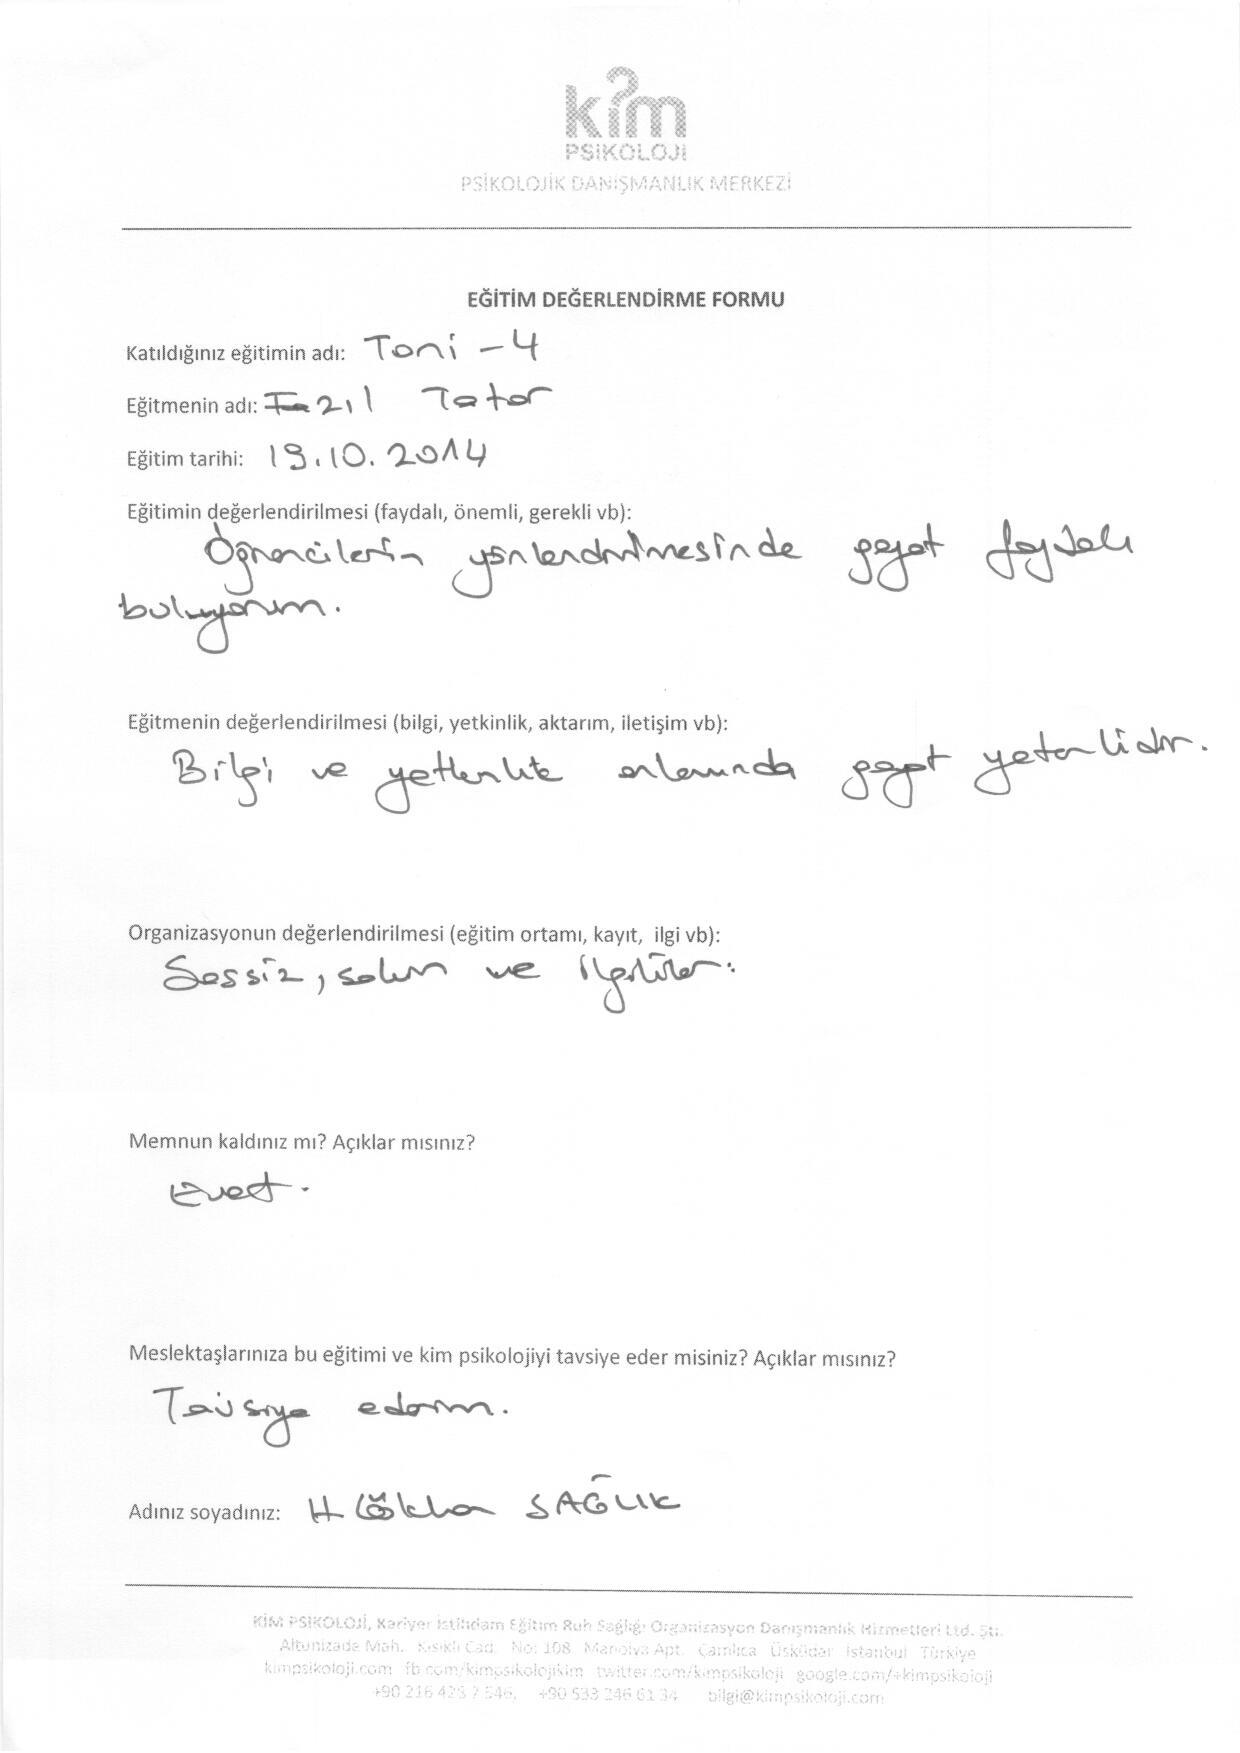 kim
PSİKOLOJİ
PSİKOLOJİK DANIŞMANLIK MERKEZİ
EĞİTİM DEĞERLENDİRME FORMU
Katıldığınız eğitimin adı: Toni - 4
Eğitmenin adı: Fazıl Tatar
Eğitim tarihi: 19.10.2014
Eğitimin değerlendirilmesi (faydalı, önemli, gerekli vb):
Öğrencilerin yönlendirilmesinde gayet faydalı
buluyorum.
Eğitmenin değerlendirilmesi (bilgi, yetkinlik, aktarım, iletişim vb):
Bilgi ve yetkinlik anlamında gayet yeterlidir.
Organizasyonun değerlendirilmesi (eğitim ortamı, kayıt, ilgi vb):
Sessiz, sakin ve ilgililer.
Memnun kaldınız mı? Açıklar mısınız?
Evet.
Meslektaşlarınıza bu eğitimi ve kim psikolojiyi tavsiye eder misiniz? Açıklar mısınız?
Tavsiye ederim.
Adınız soyadınız: H Gökhan SAĞLIK
KİM PSİKOLOJİ, Kariyer İstihdam Eğitim Ruh Sağlığı Organizasyon Danışmanlık Hizmetleri Ltd. Şti.
Altunizade Mah. Kısıklı Cad. No: 108 Manolya Apt. Çamlıca Üsküdar İstanbul Türkiye
kimpsikoloji.com fb.com/kimpsikolojikim twitter.com/kimpsikoloji google.com/+kimpsikoloji
bilgi@kimpsikoloji.com